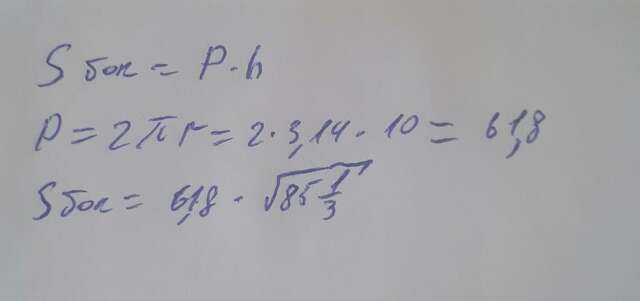 S бок = P · h
P = 2πr = 2 · 3,14 · 10 = 61,8
S бок = 61,8 · √85 1/3